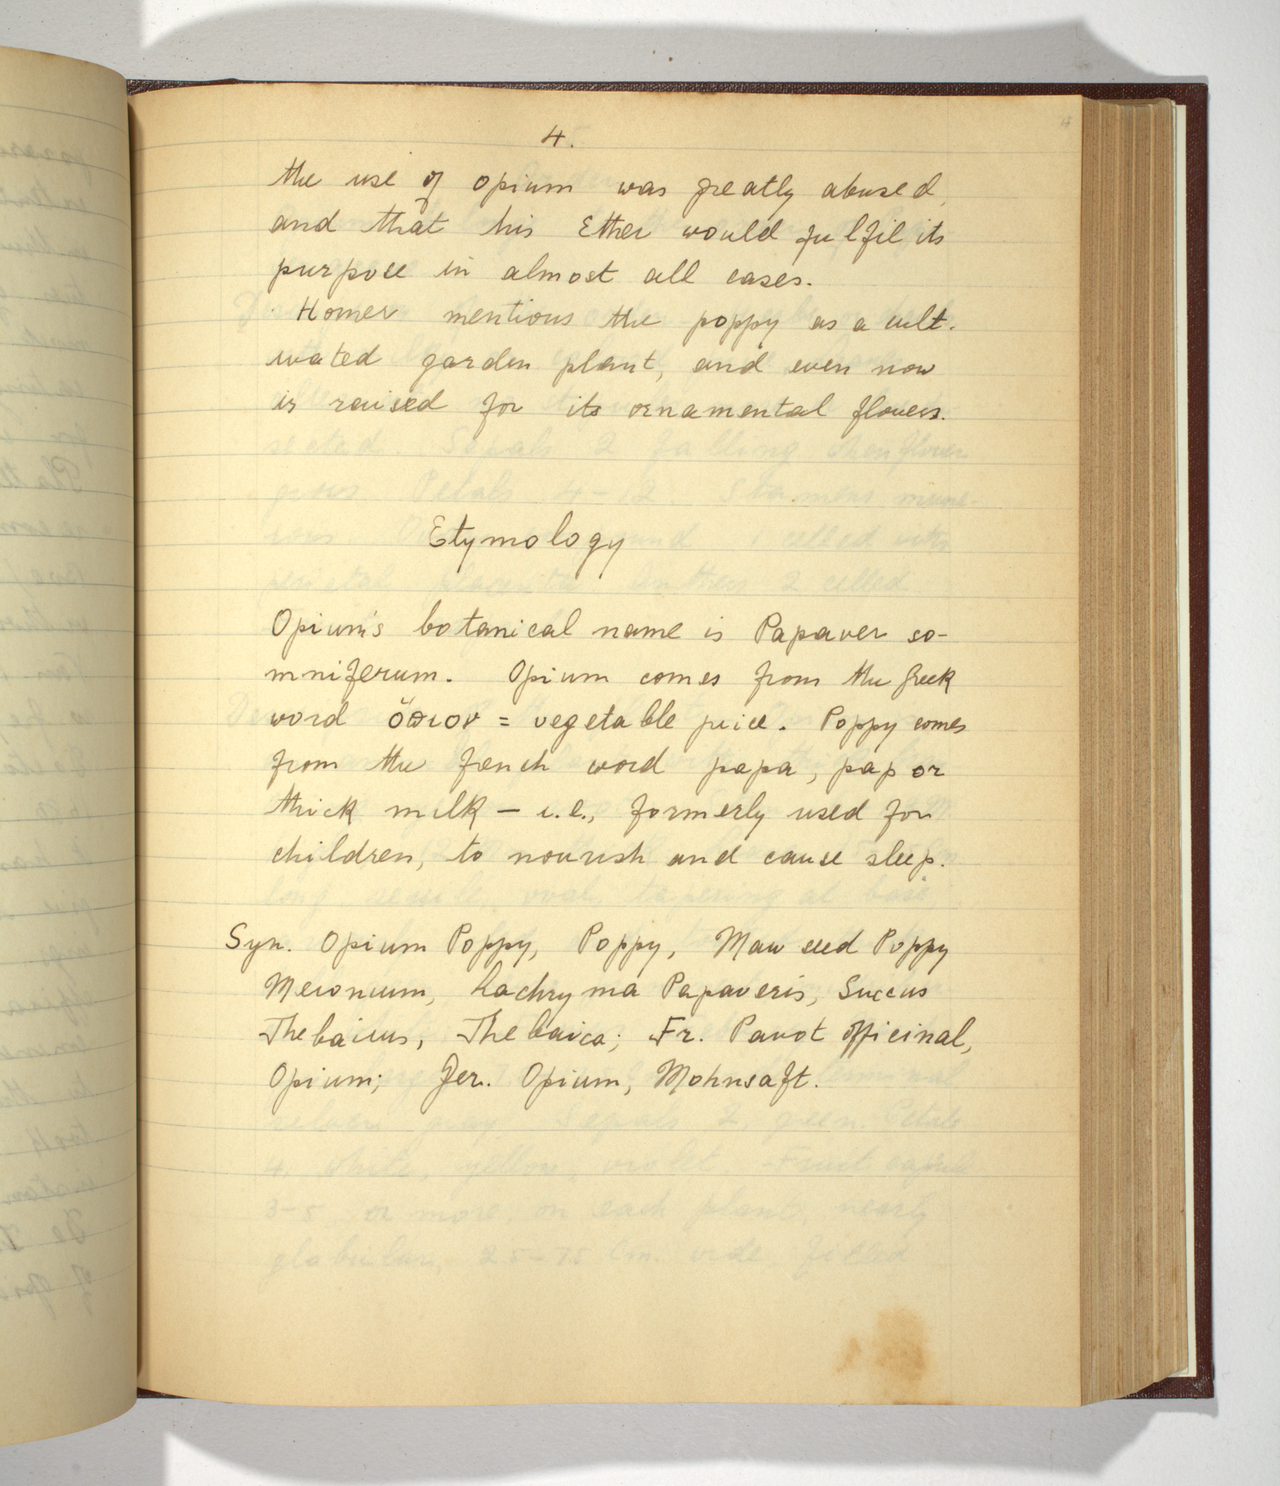 4.
the use of opium was greatly abused,
and that his Ether would fulfil its
purpose in almost all cases.
Homer mentions the poppy as a cult-
ivated garden plant, and even now
is raised for its ornamental flowers.
Etymology
Opium's botanical name is Papaver so-
mniferum. Opium comes from the Greek
word ὄπιον = vegetable juice. Poppy comes
from the french word papa, pap or
thick milk – i.e., formerly used for
children, to nourish and cause sleep.
Syn. Opium Poppy, Poppy, Maw seed Poppy
Meconium, Lachryma Papaveris, Succus
Thebaicus, Thebaica; Fr. Pavot officinal,
Opium; Ger. Opium, Mohnsaft.